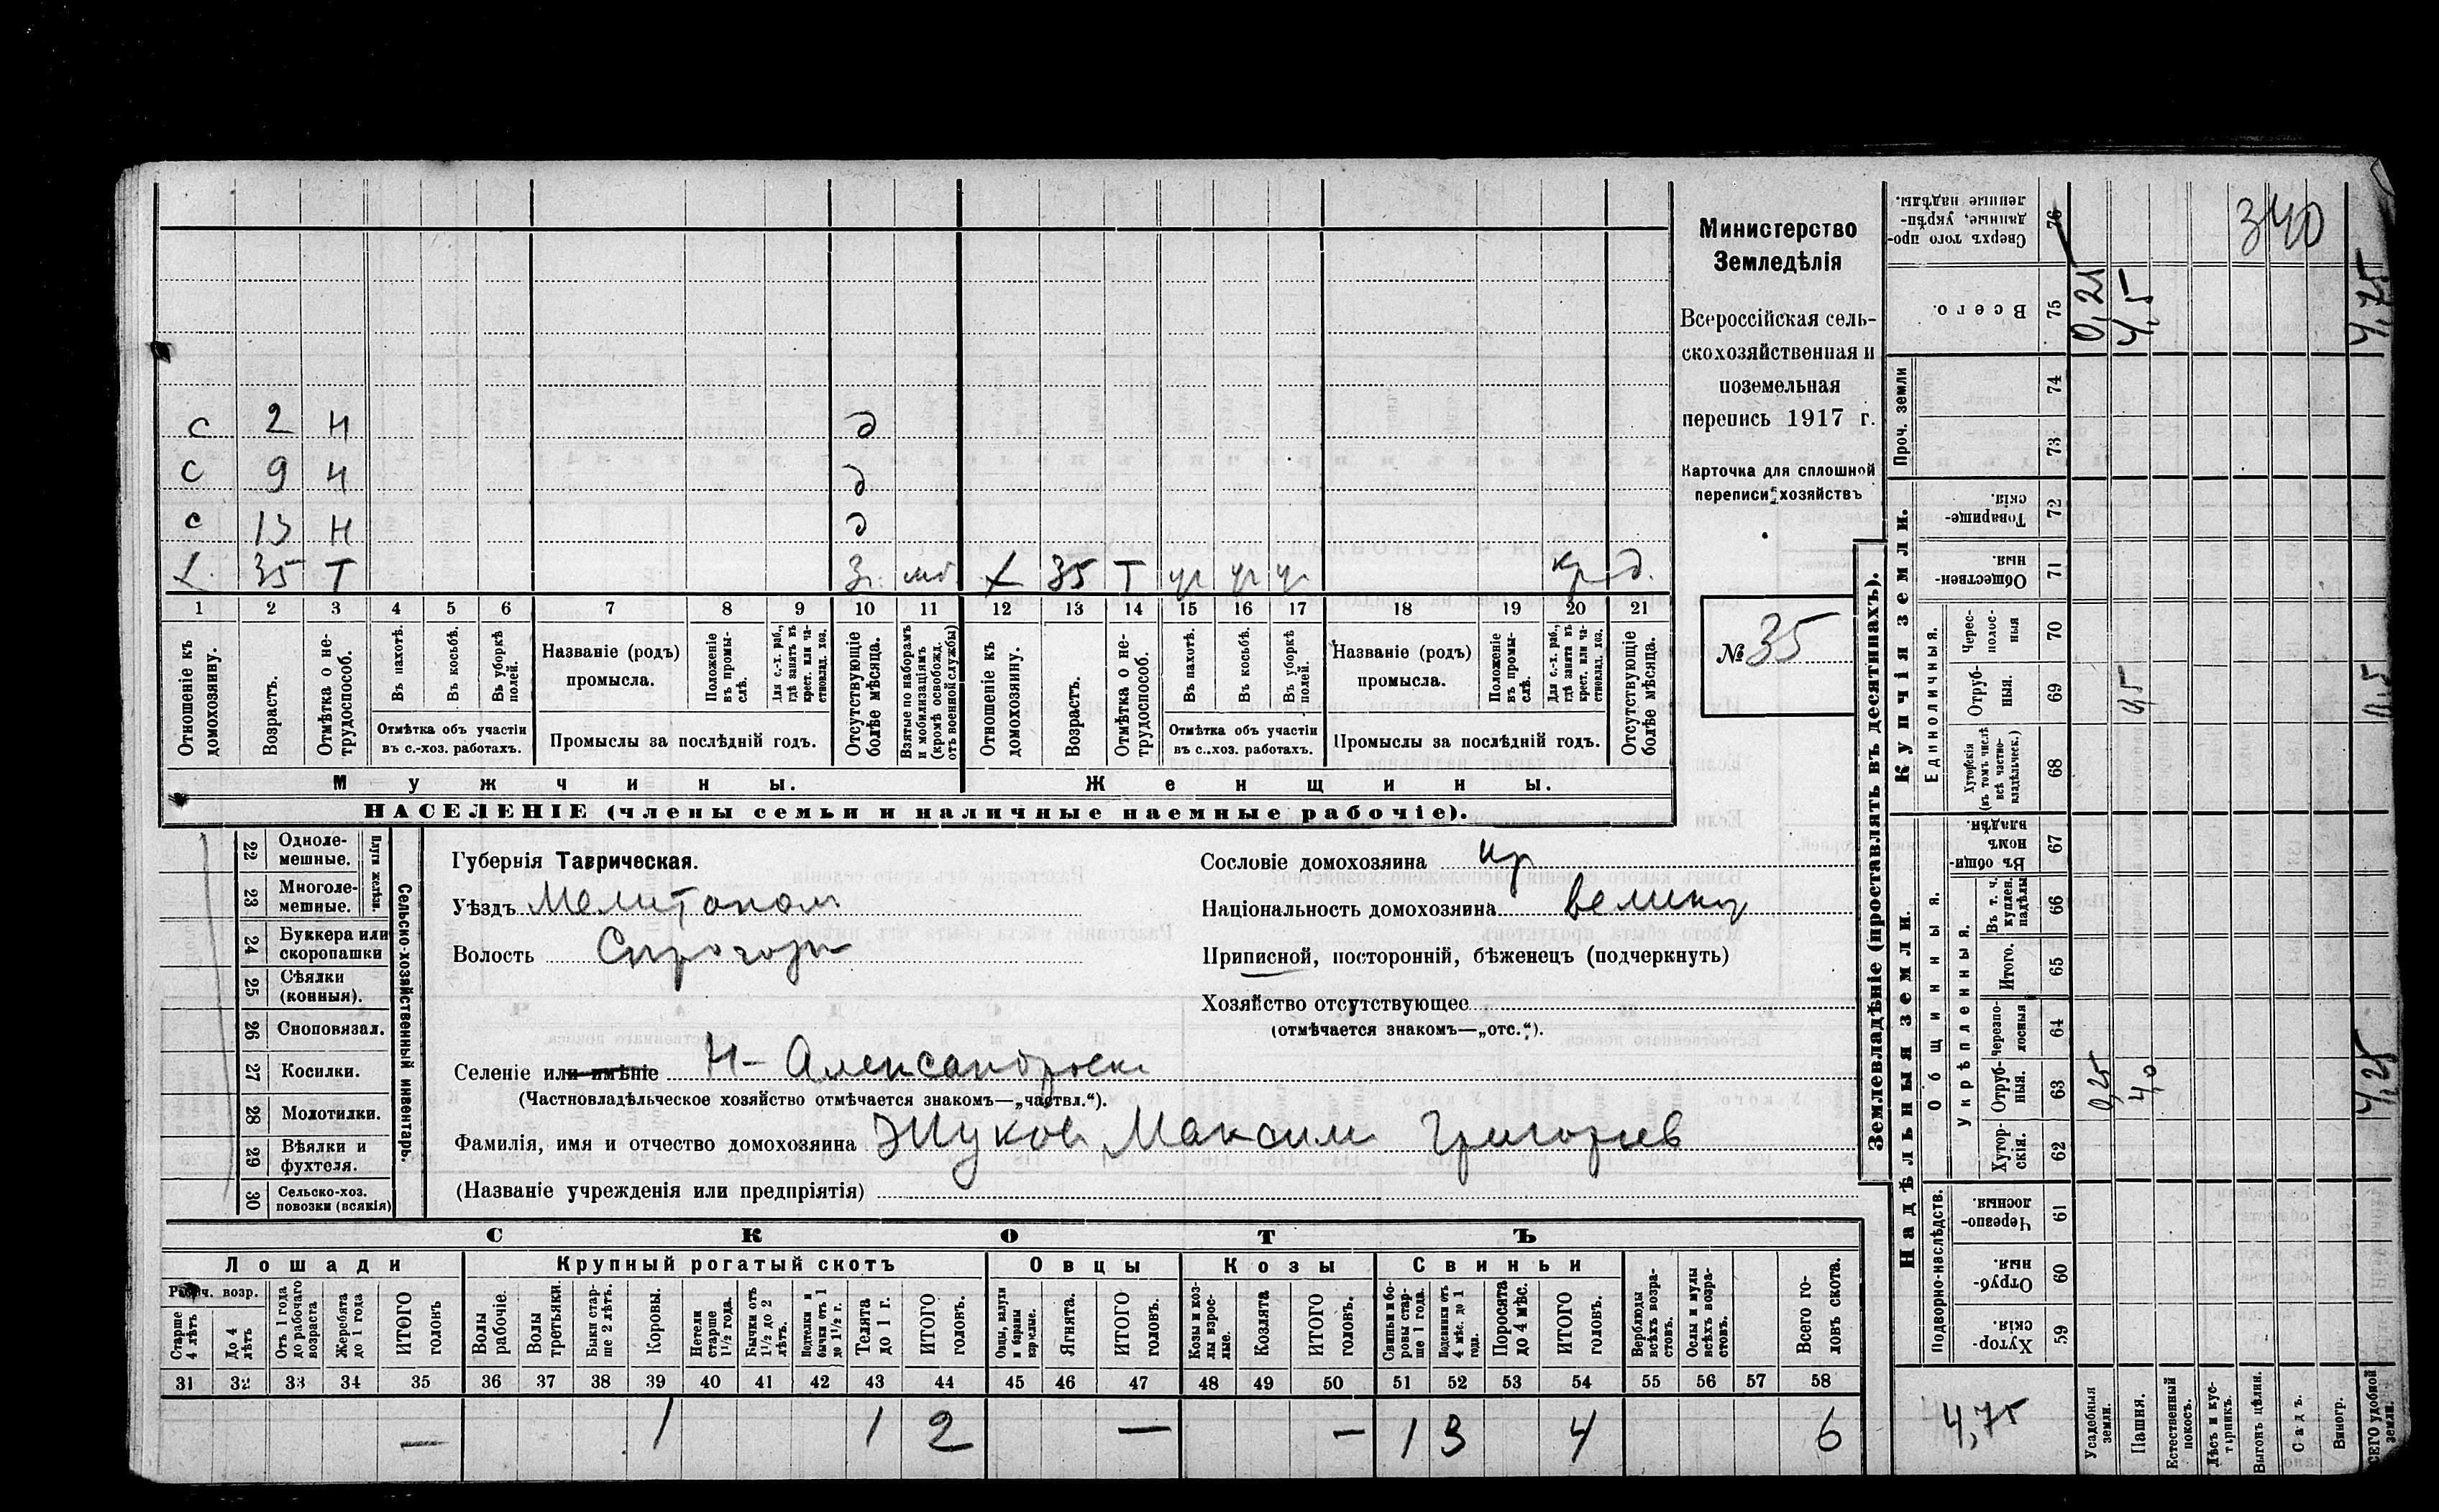 с 2 н д
с 9 н д
с 13 н д
х. 35 т З. мб х 35 т уч уч уч кр д.
1 2 3 4 5 6 7 8 9 10 11 12 13 14 15 16 17 18 19 20 21
Отношеніе къ домохозяину.
Возрастъ.
Отмѣтка о не-трудоспособ.
Въ пахотѣ.
Въ косьбѣ.
Въ уборкѣ полей.
Отмѣтка объ участіи въ с.-хоз. работахъ.
Названіе (родъ) промысла.
Положеніе въ промы-слѣ.
Для с.-х. раб., гдѣ занятъ въ крест. или ча-ствовлад. хоз.
Промыслы за послѣдній годъ.
Отсутствующіе болѣе мѣсяца.
Взятые по наборамъ и мобилизаціямъ (кромѣ освобожд. отъ военной службы)
Отношеніе къ домохозяину.
Возрастъ.
Отмѣтка о не-трудоспособ.
Въ пахотѣ.
Въ косьбѣ.
Въ уборкѣ полей.
Отмѣтка объ участіи въ с..хоз. работахъ.
Названіе (родъ) промысла.
Положеніе въ промы-слѣ.
Для с.-х. раб., гдѣ занята въ крест. или ча-ствовлад. хоз.
Промыслы за послѣдній годъ.
Отсутствующіе болѣе мѣсяца.
Мужчины.
Женщины.
НАСЕЛЕНІЕ (члены семьи и наличные наемные рабочіе).
Министерство
Земледѣлія
Всероссійская сель-
скохозяйственная и
поземельная
перепись 1917 г.
Карточка для сплошной
переписи хозяйствъ
№ 35
22 Одноле-мешные.
23 Многоле-мешные.
Плуги желѣзн.
24 Буккера или скоропашки
25 Сѣялки (конныя).
26 Сноповязал.
27 Косилки.
28 Молотилки.
29 Вѣялки и фухтеля.
30 Сельско-хоз. повозки (всякія)
Сельско-хозяйственный инвентарь.
Губернія Таврическая.
Уѣздъ Мелитопол
Волость
Селеніе или имѣніе Н-Александровск
(Частновладѣльческое хозяйство отмѣчается знакомъ—„частвл.“).
Фамилія, имя и отчество домохозяина Жуков Максим Григорьев
(Названіе учрежденія или предпріятія)
Сословіе домохозяина кр
Національность домохозяина великор
Приписной, посторонній, бѣженецъ (подчеркнуть)
Хозяйство отсутствующее
(отмѣчается знакомъ—„отс.“).
СКОТЪ
Лошади Крупный рогатый скотъ Овцы Козы Свиньи
Рабоч. возр.
Старше 4 лѣтъ
До 4 лѣтъ
Отъ 1 года до рабочаго возраста
Жеребята до 1 года
ИТОГО головъ
Волы рабочіе.
Волы третьяки.
Быки стар-ше 2 лѣтъ.
Коровы.
Нетели старше 1½ года.
Бычки отъ 1½ до 2 лѣтъ.
Подтелки и бычки отъ 1 до 1½ г.
Телята до 1 г.
ИТОГО головъ.
Овцы, валухи и бараны взрослые.
Ягнята.
ИТОГО головъ.
Козы и коз-лы взрос-лые.
Козлята
ИТОГО головъ.
Свиньи и бо-ровы стар-ше 1 года.
Подсвинки отъ 4 мѣс. до 1 года.
Поросята до 4 мѣс.
ИТОГО головъ.
Верблюды всѣхъ возра-стовъ.
Ослы и мулы всѣхъ возра-стовъ.
Всего го-ловъ скота.
31 32 33 34 35 36 37 38 39 40 41 42 43 44 45 46 47 48 49 50 51 52 53 54 55 56 57 58
— 1 1 2 — — 1 3 4 6
Землевладѣніе (проставлять въ десятинахъ).
Сверхъ того про-данные, укрѣп-ленные надѣлы. 76 340
Всего. 75 0,25 4,5 4,75
Проч. земли
74
73
Купчія земли.
Товарище-скія. 72
Обществен-ныя. 71
Единоличныя.
Черес-полос-ныя 70
Отруб-ныя. 69 0,5 0,5
Хуторскія (въ томъ числѣ всѣ частно-владѣльческ.) 68
Надѣльныя земли.
Общинныя.
Въ общин-номъ владѣн. 67
Укрѣпленныя.
Въ т. ч. куплен. надѣлы 66
Итого. 65
Черезпо-лосныя 64
Отруб-ныя. 63 0,25 4,0 4,25
Хутор-скія. 62
Подворно-наслѣдств.
Черезпо-лосныя. 61
Отруб-ныя. 60
Хутор-скія. 59
4,75
Усадебныя земли.
Пашня.
Естественный покосъ.
Лѣсъ и кус-тарникъ.
Выгонъ цѣлин.
Садъ.
Виногр.
ВСЕГО удобной земли.